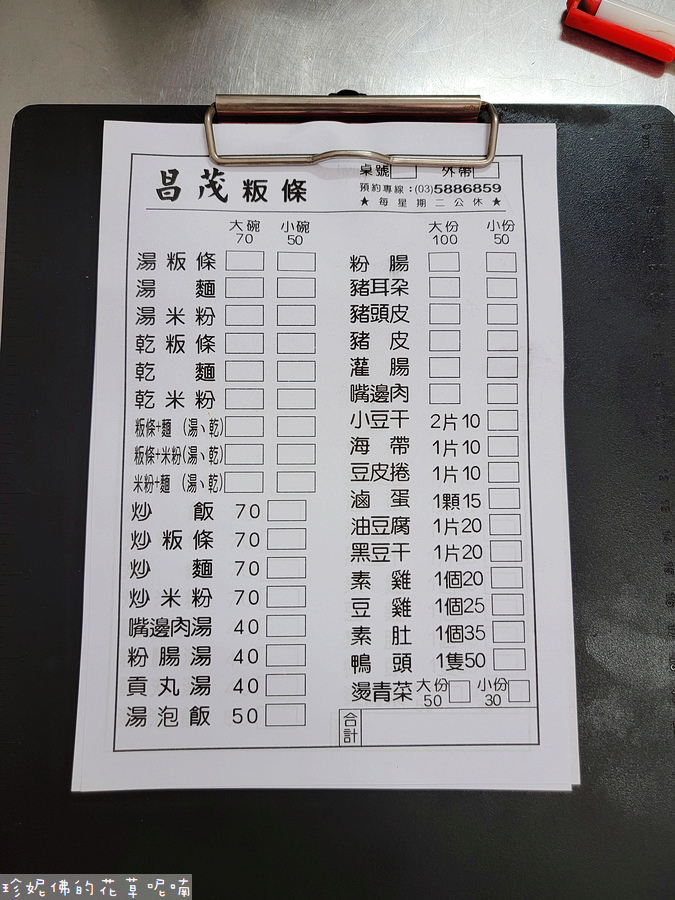 昌茂粄條
桌號 外帶
預約專線:(03)5886859
★ 每星期二公休 ★
大碗 小碗
70 50
湯粄條
湯麵
湯米粉
乾粄條
乾麵
乾米粉
粄條+麵 (湯、乾)
粄條+米粉(湯、乾)
米粉+麵 (湯、乾)
炒飯 70
炒粄條 70
炒麵 70
炒米粉 70
嘴邊肉湯 40
粉腸湯 40
貢丸湯 40
湯泡飯 50
大份 小份
100 50
粉腸
豬耳朶
豬頭皮
豬皮
灌腸
嘴邊肉
小豆干 2片10
海帶 1片10
豆皮捲 1片10
滷蛋 1顆15
油豆腐 1片20
黑豆干 1片20
素雞 1個20
豆雞 1個25
素肚 1個35
鴨頭 1隻50
燙青菜 大份 小份
50 30
合計
珍妮佛的花草呢喃